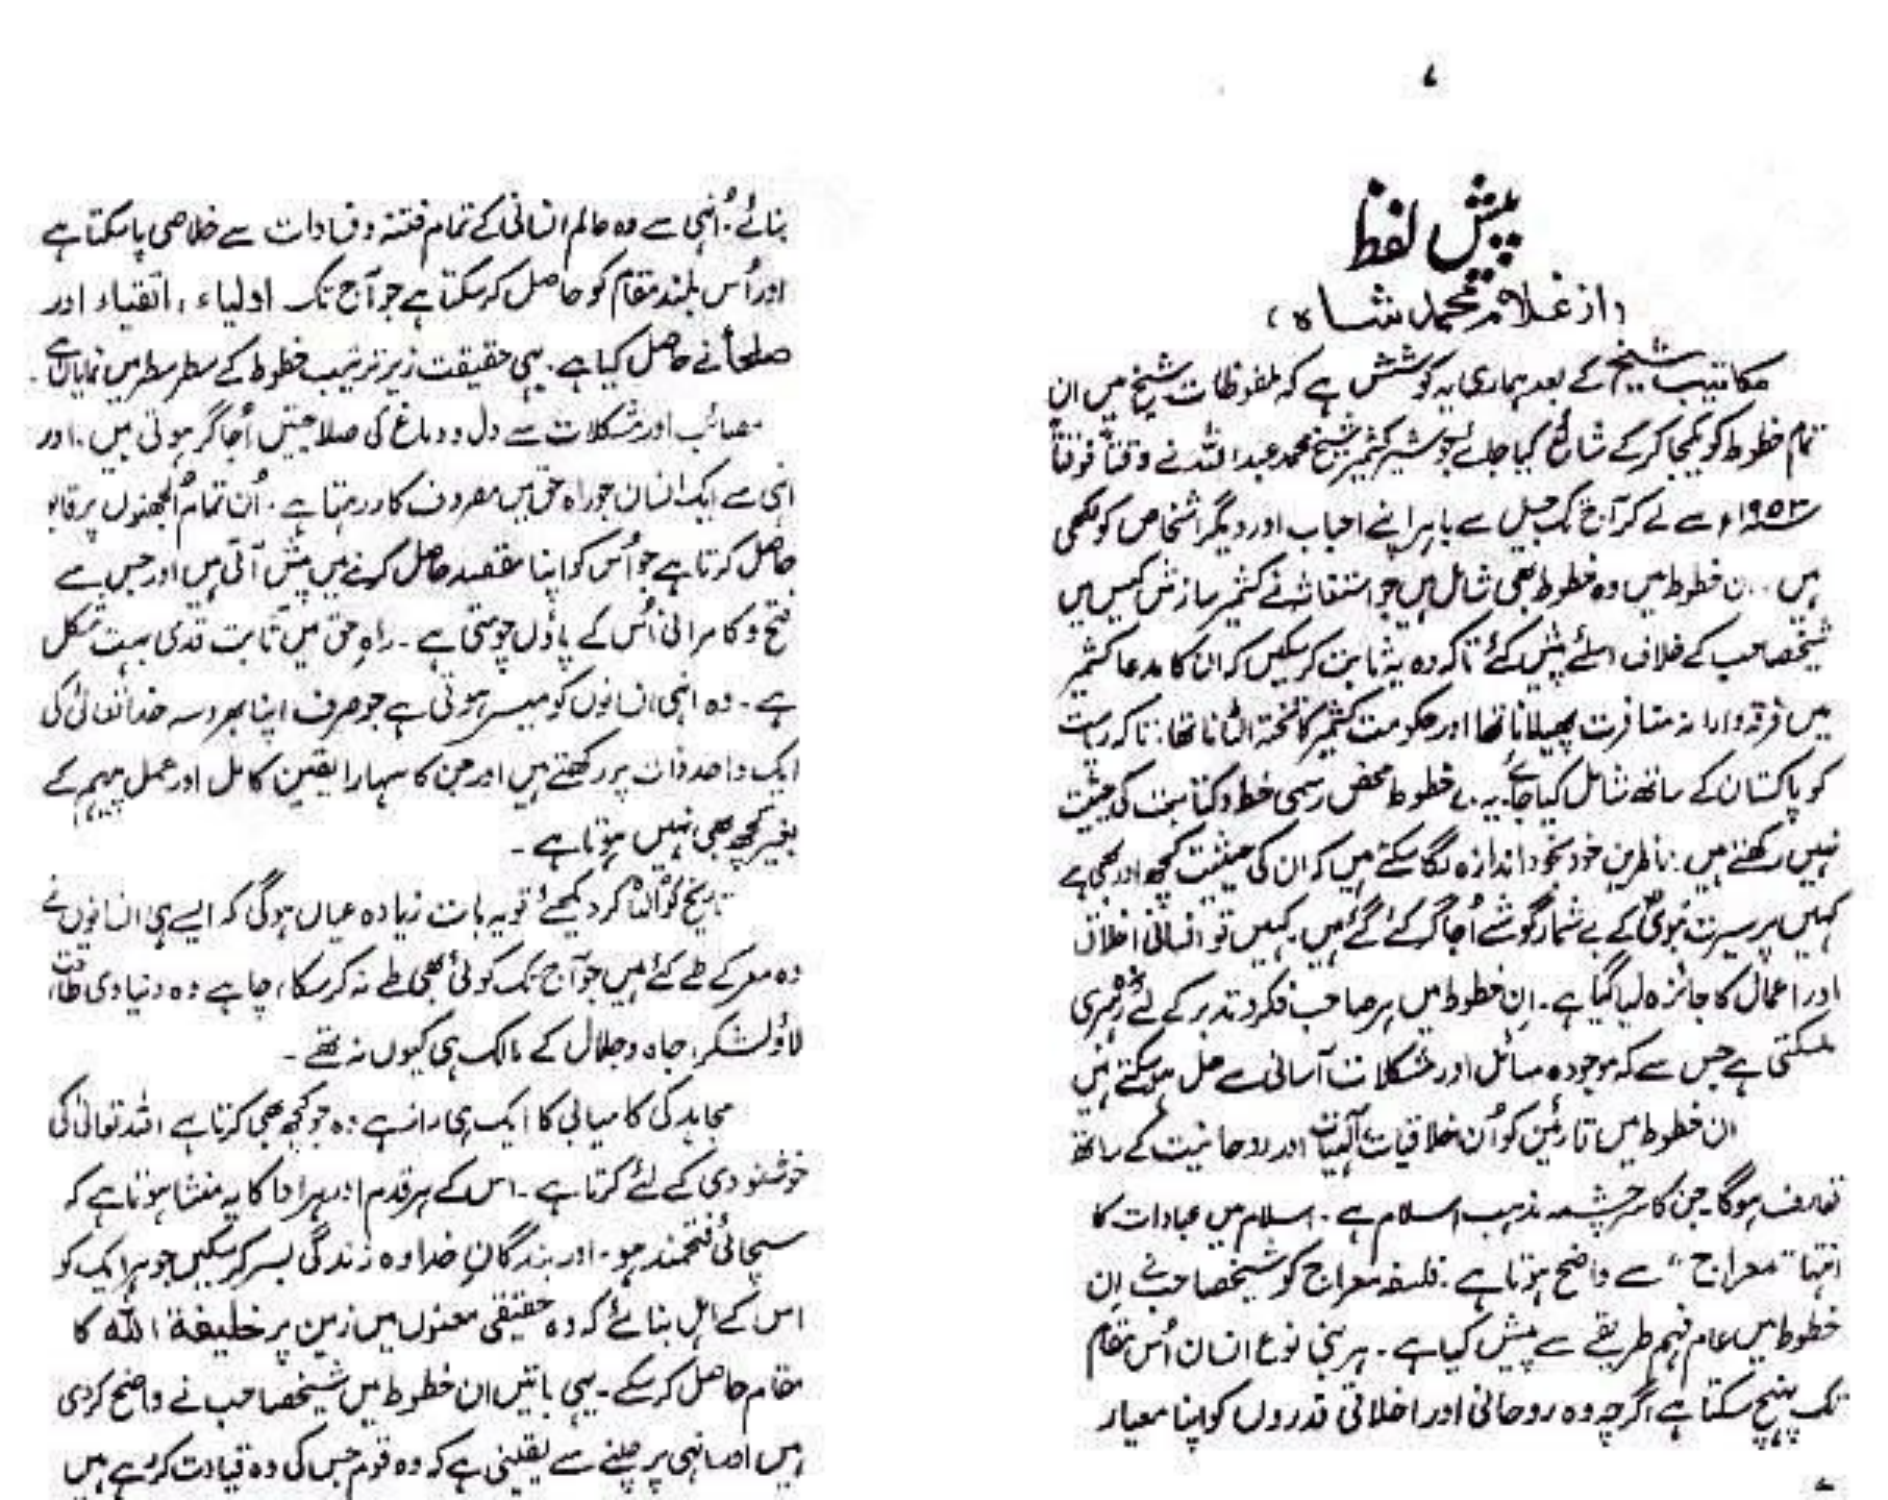 ۷
پیش لفظ
(از غلام محمد شاہ)
مکاتیب شیخ کے بعد ہماری یہ کوشش ہے کہ ملفوظات شیخ میں ان
تمام خطوط کو یکجا کر کے شائع کیا جائے جو شیر کشمیر شیخ محمد عبداللہ نے وقتاً فوقتاً
۱۹۵۳ء سے لے کر آج تک جیل سے باہر اپنے احباب اور دیگر اشخاص کو لکھی
ہیں ۔ ان خطوط میں وہ خطوط بھی شامل ہیں جو استغاثہ نے کشمیر سازش کیس میں
شیخصاحب کے خلاف اسلئے پیش کئے تاکہ وہ یہ ثابت کر سکیں کہ ان کا مدعا کشمیر
میں فرقہ وارانہ منافرت پھیلانا تھا اور حکومت کشمیر کا تختہ الٹانا تھا۔ تاکہ ریاست
کو پاکستان کے ساتھ شامل کیا جائے۔ یہ خطوط محض رسمی خط و کتابت کی حیثیت
نہیں رکھتے ہیں۔ ناظرین خود بخود اندازہ لگا سکتے ہیں کہ ان کی حیثیت کچھ اور بھی ہے
کہیں پر سیرت نبویؐ کے بے شمار گوشے اُجاگر کئے گئے ہیں۔ کہیں تو انسانی اخلاق
اور اعمال کا جائزہ لیا گیا ہے۔ اِن خطوط میں ہر صاحب فکر و تدبر کے لئے رہبری
ملسکتی ہے جس سے کہ موجودہ مسائل اور مشکلات آسانی سے حل ہو سکتے ہیں
ان خطوط میں قارئین کو اُن اخلاقیات الٰہیات اور روحانیت کے ساتھ
تعارف ہوگا۔ جن کا سرچشمہ مذہب اسلام ہے۔ اسلام میں عبادات کا
انتہا "معراج" سے واضح ہوتا ہے۔ فلسفہ معراج کو شیخصاحب نے اِن
خطوط میں عام فہم طریقے سے پیش کیا ہے۔ ہر بنی نوع انسان اُس مقام
تک پہنچ سکتا ہے اگرچہ وہ روحانی اور اخلاقی قدروں کو اپنا معیار
بنائے۔ اُنہی سے وہ عالم انسانی کے تمام فتنہ و فسادات سے خلاصی پا سکتا ہے
اور اُس بلند مقام کو حاصل کر سکتا ہے جو آج تک اولیاء، اتقیاء اور
صلحأ نے حاصل کیا ہے۔ یہی حقیقت زیر ترتیب خطوط کے سطر سطر میں نمایاں ہے۔
مصائب اور مشکلات سے دل و دماغ کی صلاحیتیں اُجاگر ہوتی ہیں۔ اور
انہی سے ایک انسان جو راہ حق میں مصروف کار رہتا ہے۔ اُن تمام اُلجھنوں پر قابو
حاصل کرتا ہے جو اُس کو اپنا مقصد حاصل کرنے میں پیش آتی ہیں اور جس سے
فتح و کامرانی اُس کے پاؤں چومتی ہے۔ راہِ حق میں ثابت قدمی بہت مشکل
ہے۔ وہ انہی انسانوں کو میسر ہوتی ہے جو صرف اپنا بھروسہ خدا تعالیٰ کی
ایک واحد ذات پر رکھتے ہیں اور جن کا سہارا یقین کامل اور عمل پیہم کے
بغیر کچھ بھی نہیں ہوتا ہے۔
تاریخ کو اُلٹا کر دیکھئے تو یہ بات زیادہ عیاں ہوگی کہ ایسے ہی انسانوں نے
وہ معرکے طے کئے ہیں جو آج تک کوئی بھی طے نہ کر سکا، چاہے وہ دنیاوی طاقت
لاؤ لشکر، جاہ و جلال کے مالک ہی کیوں نہ تھے۔
مجاہد کی کامیابی کا ایک ہی راز ہے وہ جو کچھ بھی کرتا ہے اللہ تعالیٰ کی
خوشنودی کے لئے کرتا ہے۔ اس کے ہر قدم اور ہر ادا کا یہ منشا ہوتا ہے کہ
سچائی فتحمند ہو۔ اور بندگانِ خدا وہ زندگی بسر کر سکیں جو ہر ایک کو
اس کے اہل بنائے کہ وہ حقیقی معنوں میں زمین پر خلیفۃ اللہ کا
مقام حاصل کر سکے۔ یہی باتیں ان خطوط میں شیخصاحب نے واضح کردی
ہیں اور انہی پر چلنے سے یقینی ہے کہ وہ قوم جس کی وہ قیادت کر رہے ہیں